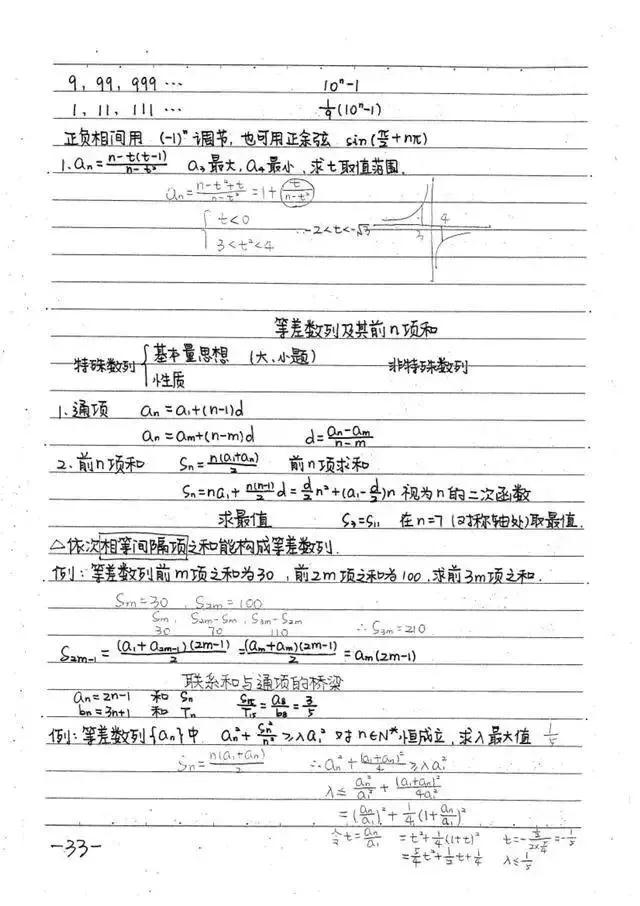 9, 99, 999 ⋯ 10ⁿ-1
1, 11, 111 ⋯ 1/9(10ⁿ-1)
正负相间用 (-1)ⁿ调节,也可用正余弦 sin(π/2+nπ)
1. aₙ = (n-t(t-1))/(n-t²) a₃最大, a₄最小, 求t取值范围.
aₙ = (n-t²+t)/(n-t²) = 1+ t/(n-t²)
{ t<0
3<t²<4 ∴-2<t<-√3 3 4
等差数列及其前n项和
特殊数列 { 基本量思想 (大、小题) 非特殊数列
性质
1. 通项 aₙ=a₁+(n-1)d
aₙ=aₘ+(n-m)d d=(aₙ-aₘ)/(n-m)
2. 前n项和 Sₙ=n(a₁+aₙ)/2 前n项求和
Sₙ=na₁+ n(n-1)/2 d = d/2 n²+(a₁-d/2)n 视为n的二次函数
求最值 S₃=S₁₁ 在n=7(对称轴处)取最值.
△依次相等间隔项之和能构成等差数列.
例:等差数列前m项之和为30,前2m项之和为100,求前3m项之和.
Sₘ=30 , S₂ₘ=100
Sₘ, S₂ₘ-Sₘ, S₃ₘ-S₂ₘ
30 70 110 ∴S₃ₘ=210
S₂ₘ₋₁ = (a₁+a₂ₘ₋₁)(2m-1)/2 = (aₘ+aₘ)(2m-1)/2 = aₘ(2m-1)
联系和与通项的桥梁
aₙ=2n-1 和 Sₙ
bₙ=3n+1 和 Tₙ S₁₅/T₁₅ = a₈/b₈ = 3/5
例:等差数列{aₙ}中 aₙ²+Sₙ²/n²≥λa₁² 对n∈N*恒成立,求λ最大值 1/5
Sₙ=n(a₁+aₙ)/2 ∴aₙ²+(a₁+aₙ)²/4≥λa₁²
λ≤ aₙ²/a₁² + (a₁+aₙ)²/4a₁²
=(aₙ/a₁)²+1/4(1+aₙ/a₁)²
令t=aₙ/a₁ =t²+1/4(1+t)² t=-(1/2)/(2×5/4)=-1/5
=5/4t²+1/2t+1/4 λ≤1/5
-33-